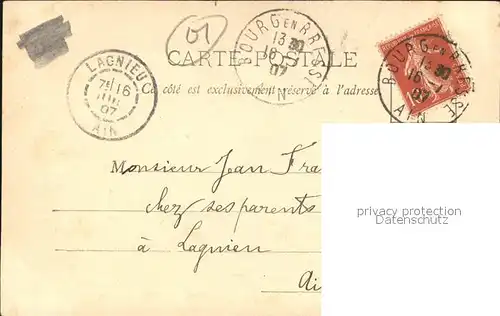 01
CARTE POSTALE
Ce côté est exclusivement réservé à l'adresse
BOURG EN BRESSE
13 30
16
07
AIN
BOURG EN BRESSE
13 30
16
AIN
LAGNIEU
7E 16
07
AIN
Monsieur Jean Fra
chez ses parents
à Lagnieu
Ai
privacy protection
Datenschutz